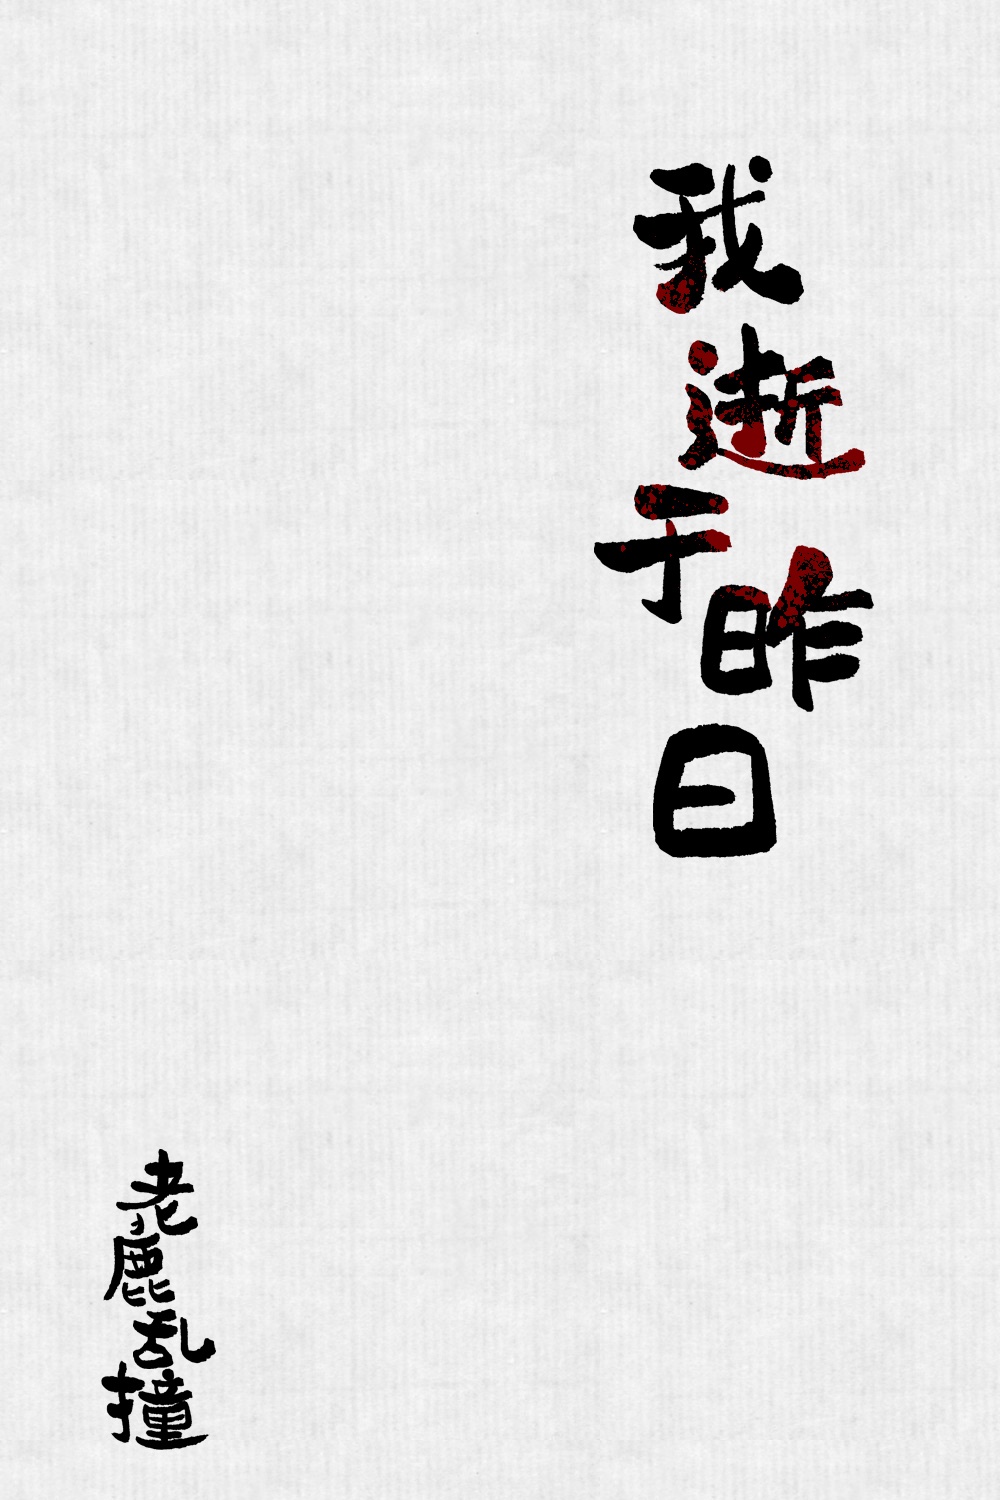 我逝于昨日
老鹿乱撞